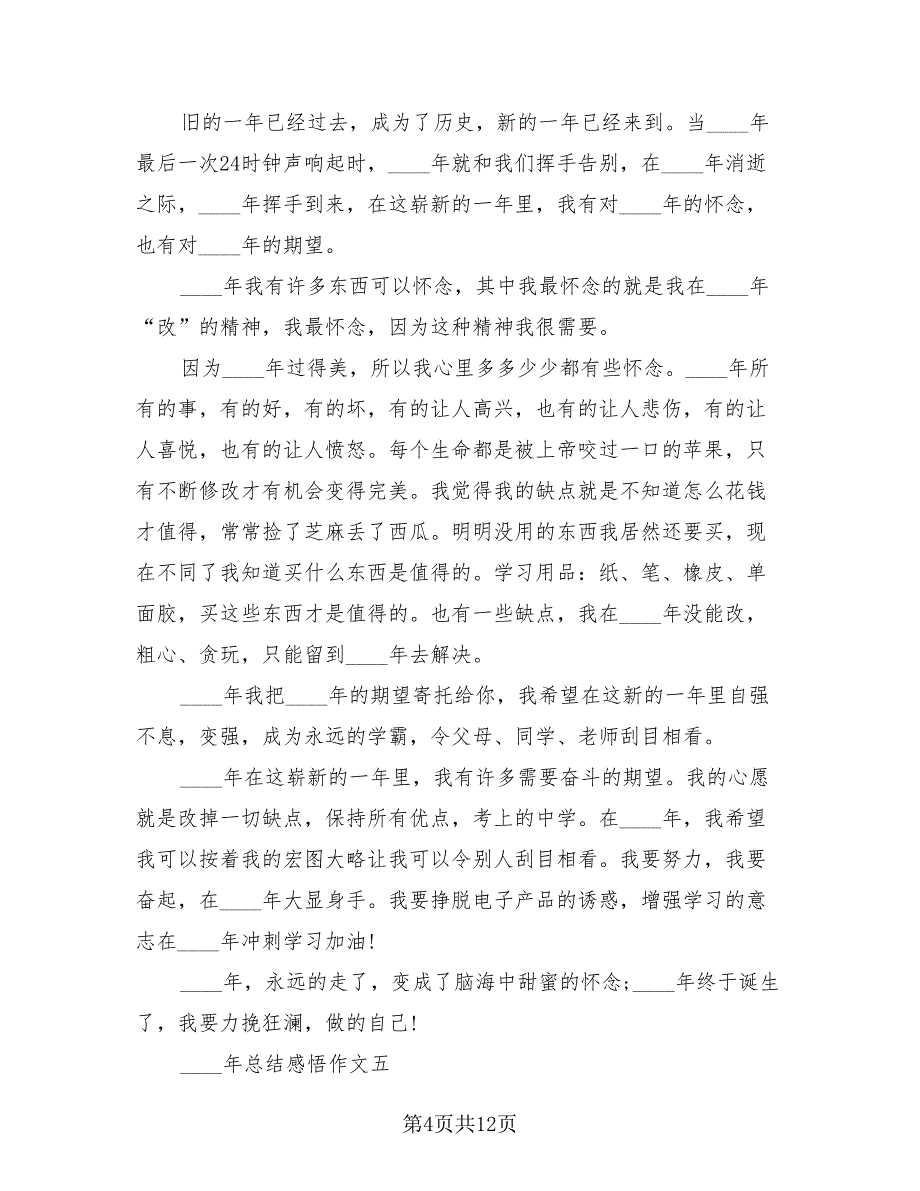 旧的一年已经过去，成为了历史，新的一年已经来到。当____年
最后一次24时钟声响起时，____年就和我们挥手告别，在____年消逝
之际，____年挥手到来，在这崭新的一年里，我有对____年的怀念，
也有对____年的期望。
____年我有许多东西可以怀念，其中我最怀念的就是我在____年
“改”的精神，我最怀念，因为这种精神我很需要。
因为____年过得美，所以我心里多多少少都有些怀念。____年所
有的事，有的好，有的坏，有的让人高兴，也有的让人悲伤，有的让
人喜悦，也有的让人愤怒。每个生命都是被上帝咬过一口的苹果，只
有不断修改才有机会变得完美。我觉得我的缺点就是不知道怎么花钱
才值得，常常捡了芝麻丢了西瓜。明明没用的东西我居然还要买，现
在不同了我知道买什么东西是值得的。学习用品：纸、笔、橡皮、单
面胶，买这些东西才是值得的。也有一些缺点，我在____年没能改，
粗心、贪玩，只能留到____年去解决。
____年我把____年的期望寄托给你，我希望在这新的一年里自强
不息，变强，成为永远的学霸，令父母、同学、老师刮目相看。
____年在这崭新的一年里，我有许多需要奋斗的期望。我的心愿
就是改掉一切缺点，保持所有优点，考上的中学。在____年，我希望
我可以按着我的宏图大略让我可以令别人刮目相看。我要努力，我要
奋起，在____年大显身手。我要挣脱电子产品的诱惑，增强学习的意
志在____年冲刺学习加油!
____年，永远的走了，变成了脑海中甜蜜的怀念;____年终于诞生
了，我要力挽狂澜，做的自己!
____年总结感悟作文五
第4页共12页